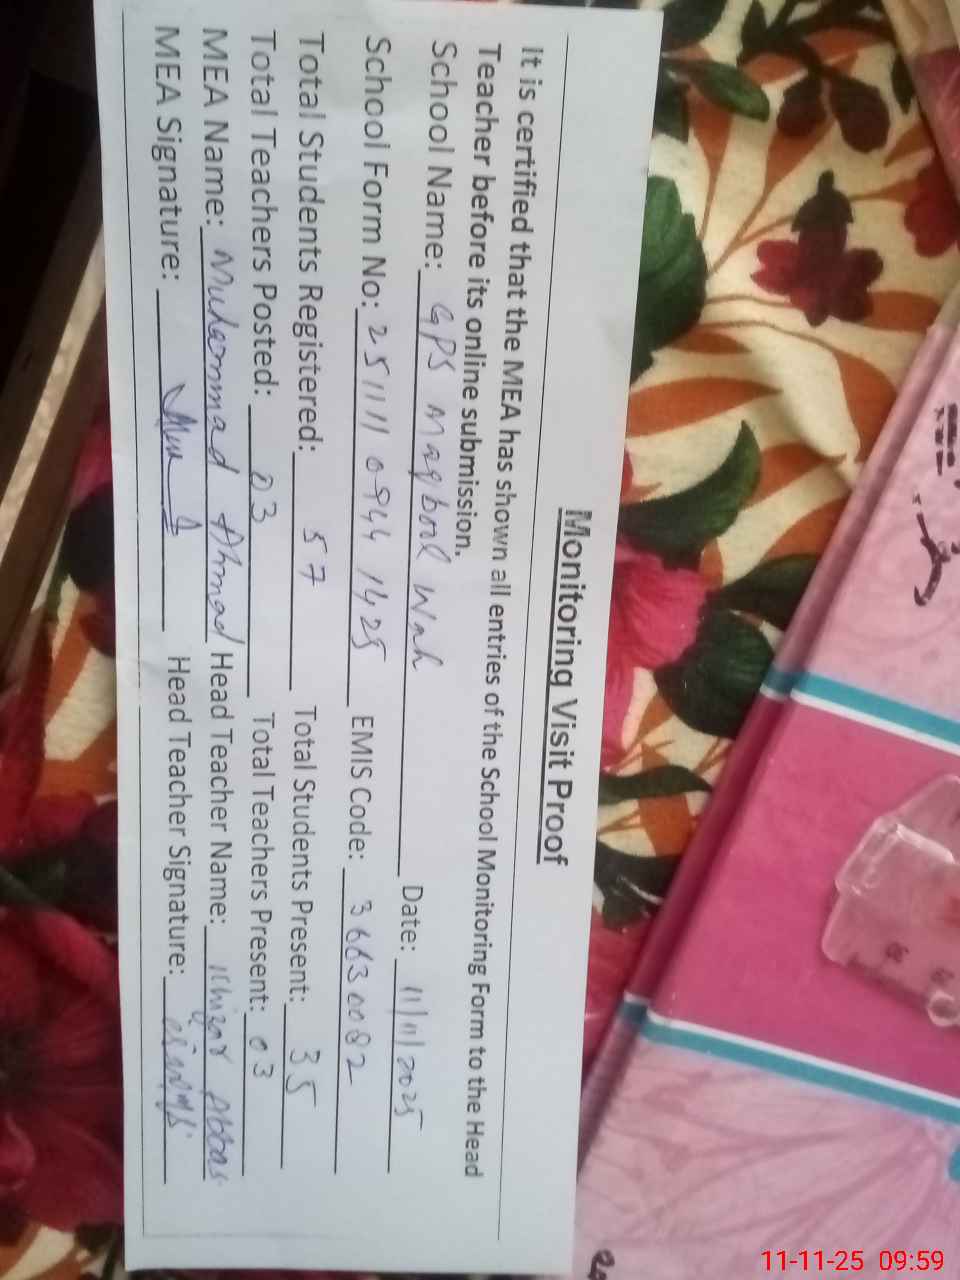 Monitoring Visit Proof
It is certified that the MEA has shown all entries of the School Monitoring Form to the Head
Teacher before its online submission.
School Name: GPS Maqbool Wah Date: 11/11/2025
School Form No: 251111 0944 1425 EMIS Code: 36630082
Total Students Registered: 57 Total Students Present: 35
Total Teachers Posted: 03 Total Teachers Present: 03
MEA Name: Muhammad Ahmad Head Teacher Name: Abbas
MEA Signature: Head Teacher Signature:
11-11-25 09:59